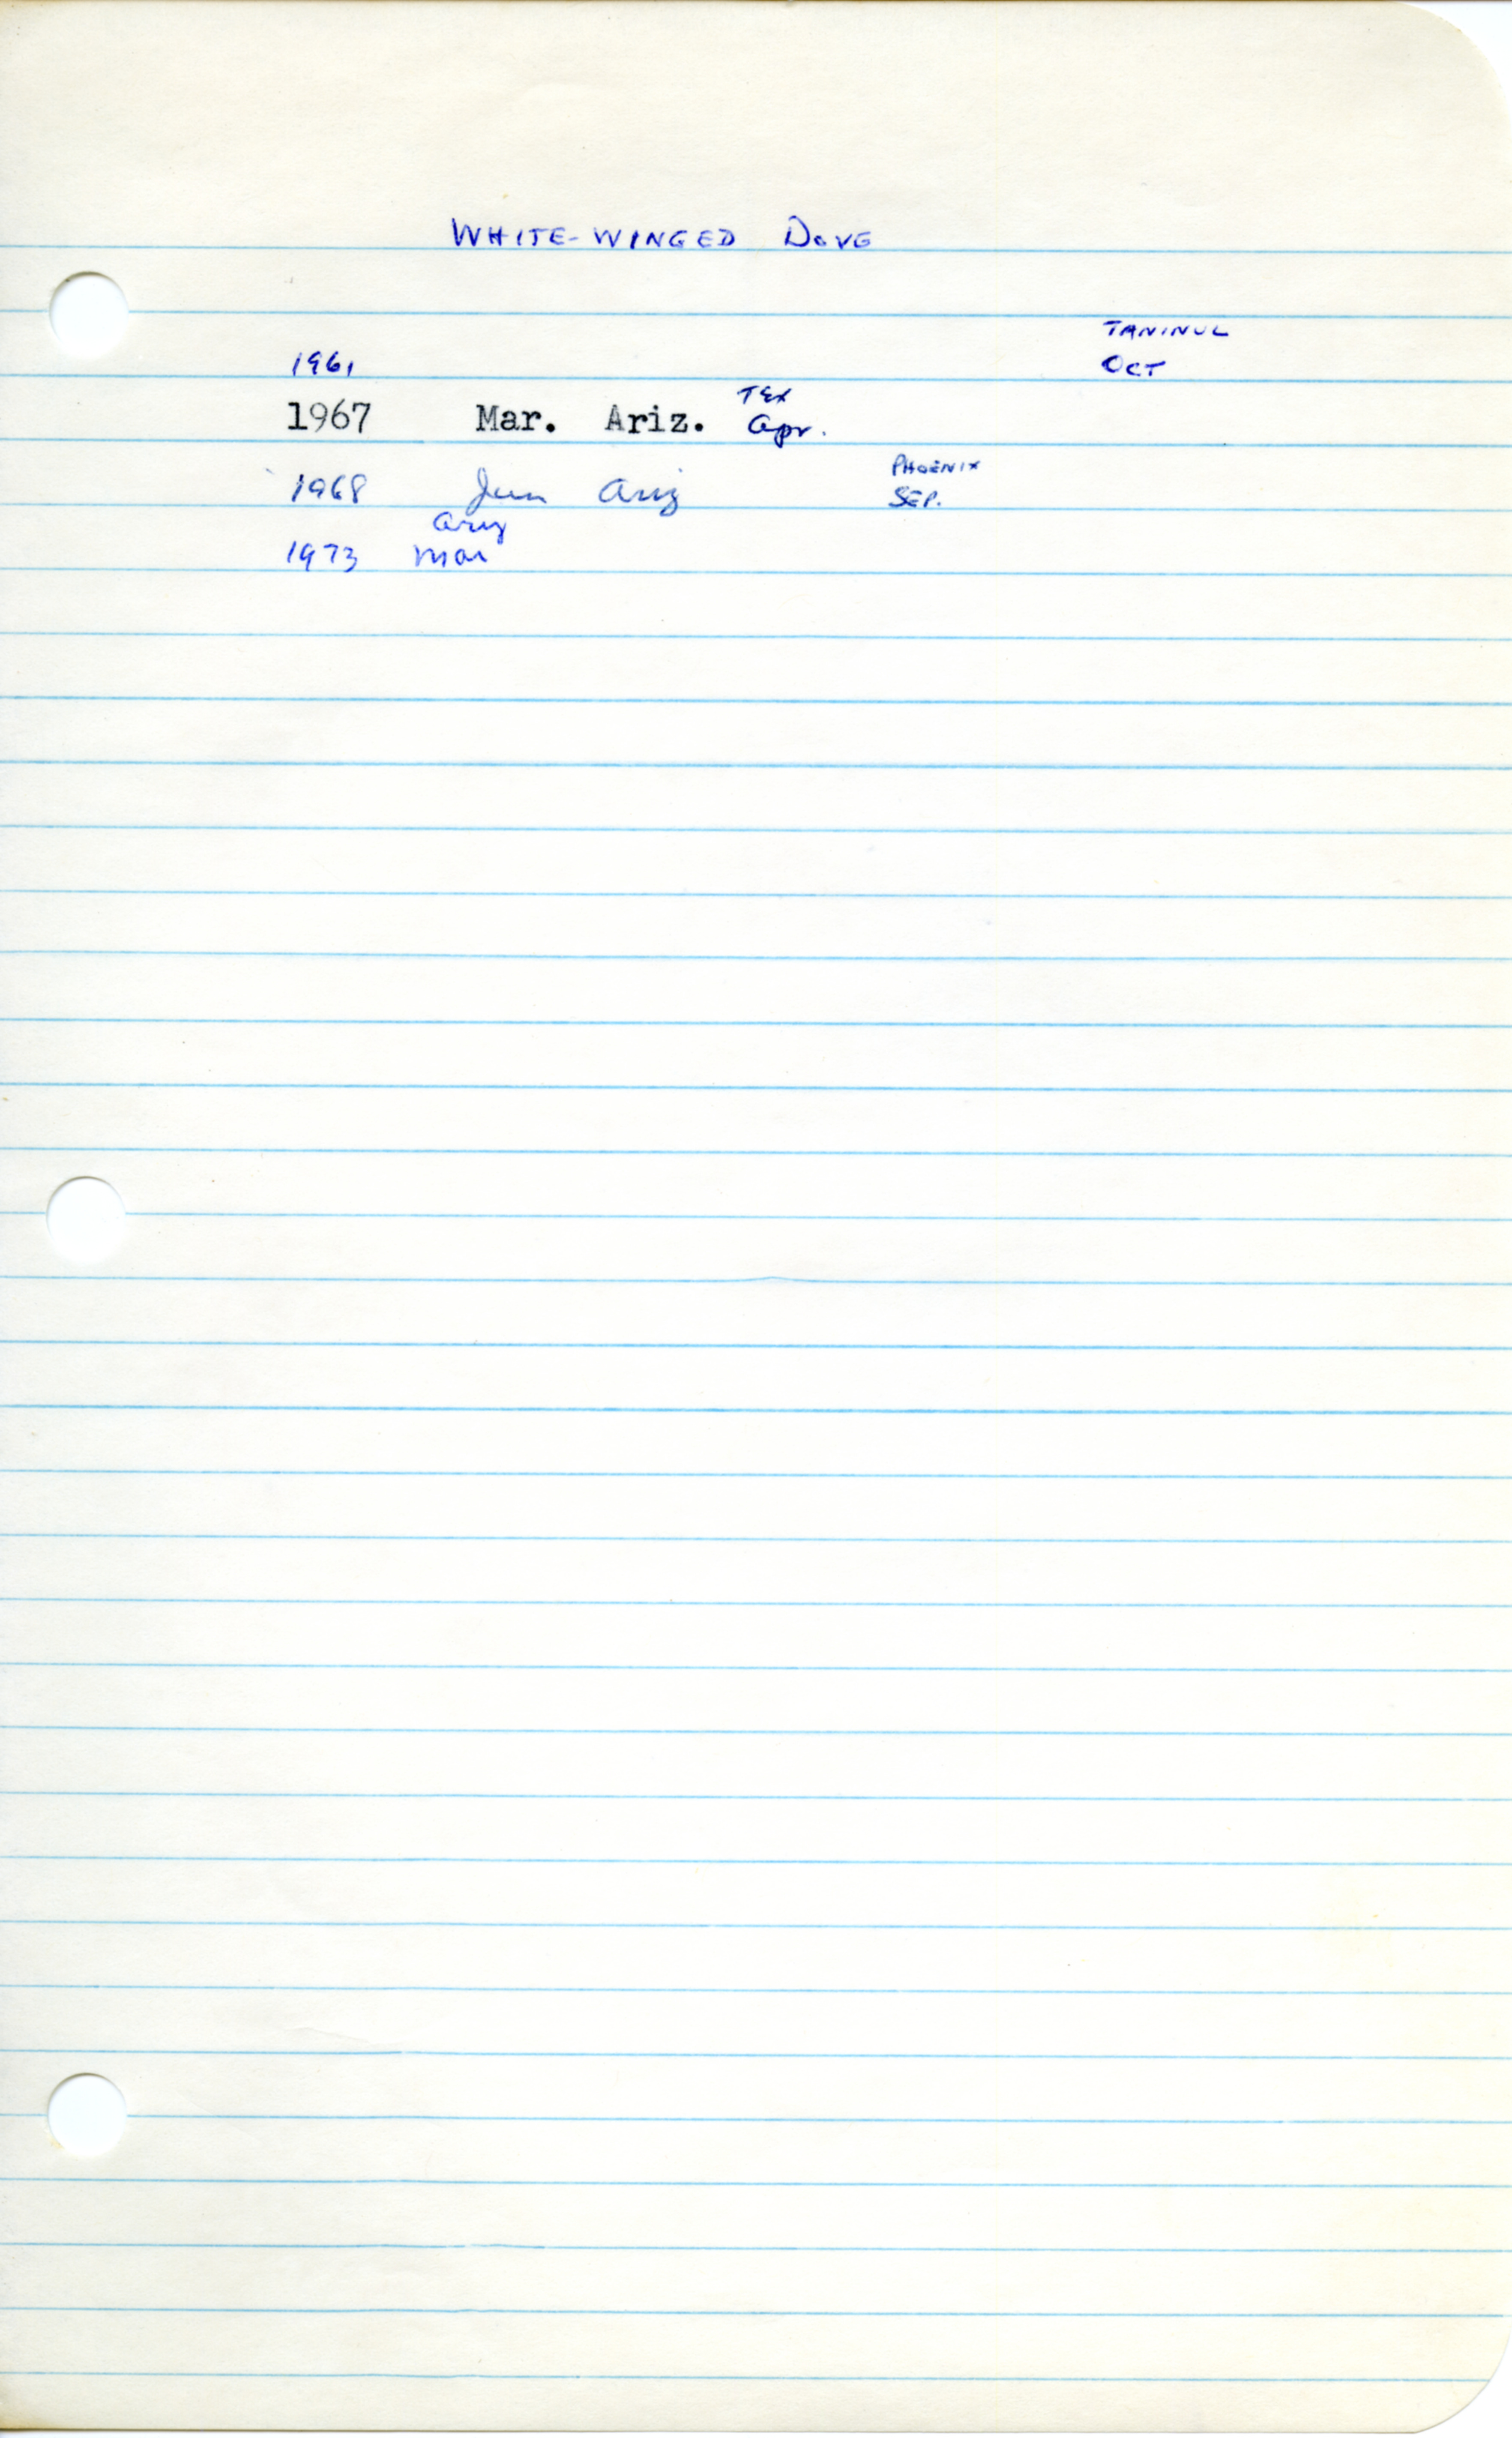 WHITE-WINGED DOVE
TANINUL
1961 OCT
TEX
1967 Mar. Ariz. Apr.
PHOENIX
1968 Jun Ariz SEP.
Ariz
1973 Mar